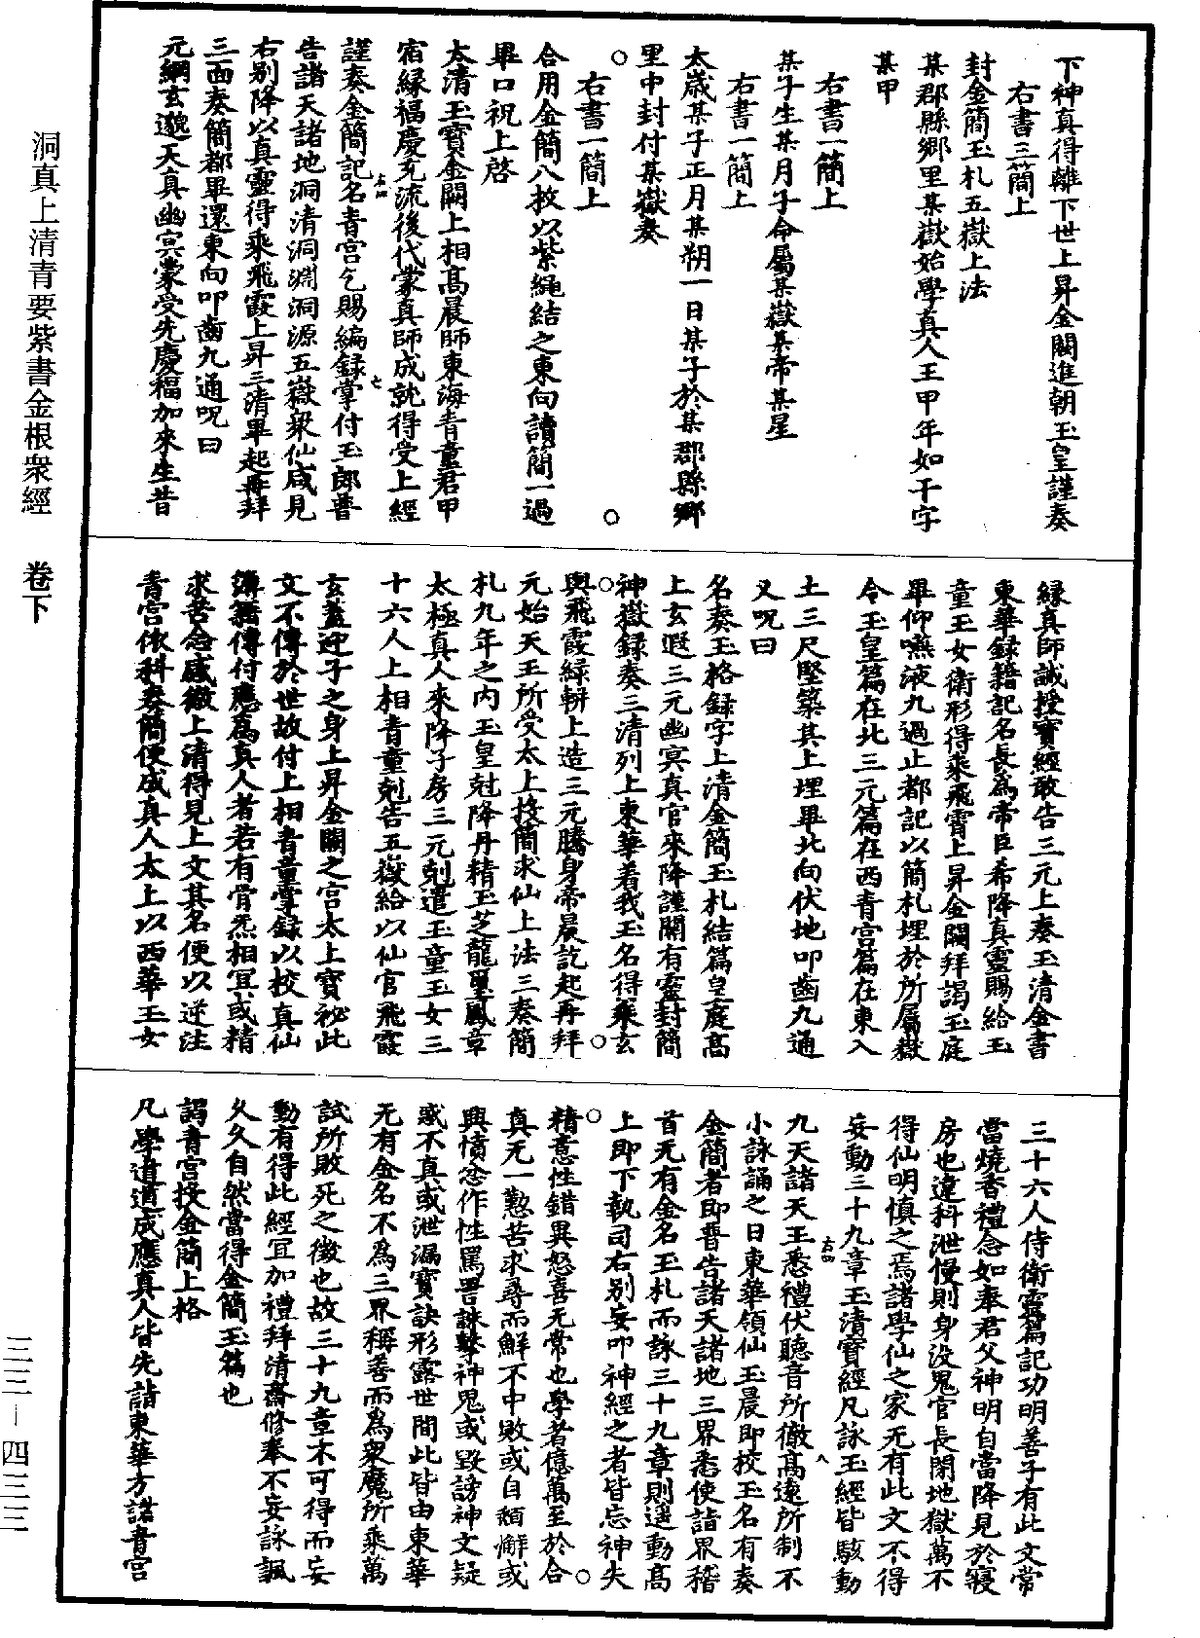 下神真得離下世上昇金闕進朝玉皇謹奏
右書三簡上
封金簡玉札五嶽上法
某郡縣鄉里某嶽始學真人王甲年如干字
某甲
右書一簡上
某子生某月子命屬某嶽某帝某星
右書一簡上
太歲某子正月某朔一日某子於某郡縣鄉
里中封付某嶽奏
右書一簡上
合用金簡八枚以紫繩結之東向讀簡一過
畢口祝上啓
太清玉寶金闕上相高晨師東海青童君甲
宿緣福慶充流後代蒙真師成就得受上經
謹奏金簡記名青宮乞賜編錄掌付玉郎普
告諸天諸地洞清洞淵洞源五嶽衆仙咸見
右别降以真靈得乘飛霞上昇三清畢起再拜
三面奏簡都畢還東向叩齒九通呪曰
元綱玄邈天真幽冥蒙受先慶福加來生昔
緣真師誡授寶經敢告三元上奏玉清金書
東華録籍記名長為帝臣希降真靈賜給玉
童玉女衛形得乘飛霄上昇金闕拜謁玉庭
畢仰嚥液九過止都記以簡札埋於所屬嶽
令玉皇篇在北三元篇在西青宮篇在東入
土三尺堅築其上埋畢北向伏地叩齒九通
又呪曰
名奏玉格録字上清金簡玉札結篇皇庭高
上玄遐三元幽冥真官來降謹關有靈封簡
神嶽録奏三清列上東華着我玉名得乘玄
輿飛霞綠軿上造三元騰身帝晨訖起再拜
元始天王所受太上投簡求仙上法三奏簡
札九年之内玉皇尅降丹精玉芝龍璽鳳章
太極真人來降子房三元剋遣玉童玉女三
十六人上相青童剋告五嶽給以仙官飛霞
玄蓋迎子之身上昇金闕之宮太上寶祕此
文不傳於世故付上相青童掌録以校真仙
簿籍傳付應為真人者若有骨炁相冝或精
求苦念感徹上清得見上文其名便以逆注
青宮依科奏簡便成真人太上以西華玉女
三十六人侍衛靈篇記功明善子有此文常
當燒香禮念如奉君父神明自當降見於寢
房也違科泄慢則身没鬼官長閉地獄萬不
得仙明慎之焉諸學仙之家无有此文不得
妄動三十九章玉清寶經凡詠玉經皆駭動
九天諸天王悉禮伏聽音所徹高遠所制不
小詠誦之日東華領仙玉晨即校玉名有奏
金簡者即普告諸天諸地三界悉使詣界稽
首无有金名玉札而詠三十九章則遥動高
上即下執司右别妄叩神經之者皆忘神失
精意性錯異怒喜无常也學者億萬至於合
真无一懃苦求尋而鮮不中敗或自頺懈或
興憤忿作性罵詈誅擊神鬼或毁謗神文疑
惑不真或泄漏寶訣形露世間此皆由東華
无有金名不為三界稱善而為衆魔所乘萬
試所敗死之徵也故三十九章不可得而妄
動有得此經冝加禮拜清齋修奉不妄詠諷
久久自然當得金簡玉篇也
謁青宮投金簡上格
凡學道道成應真人皆先詣東華方諸青宮
右四
七
右四
八
洞真上清青要紫書金根衆經　卷下
三三－四三三